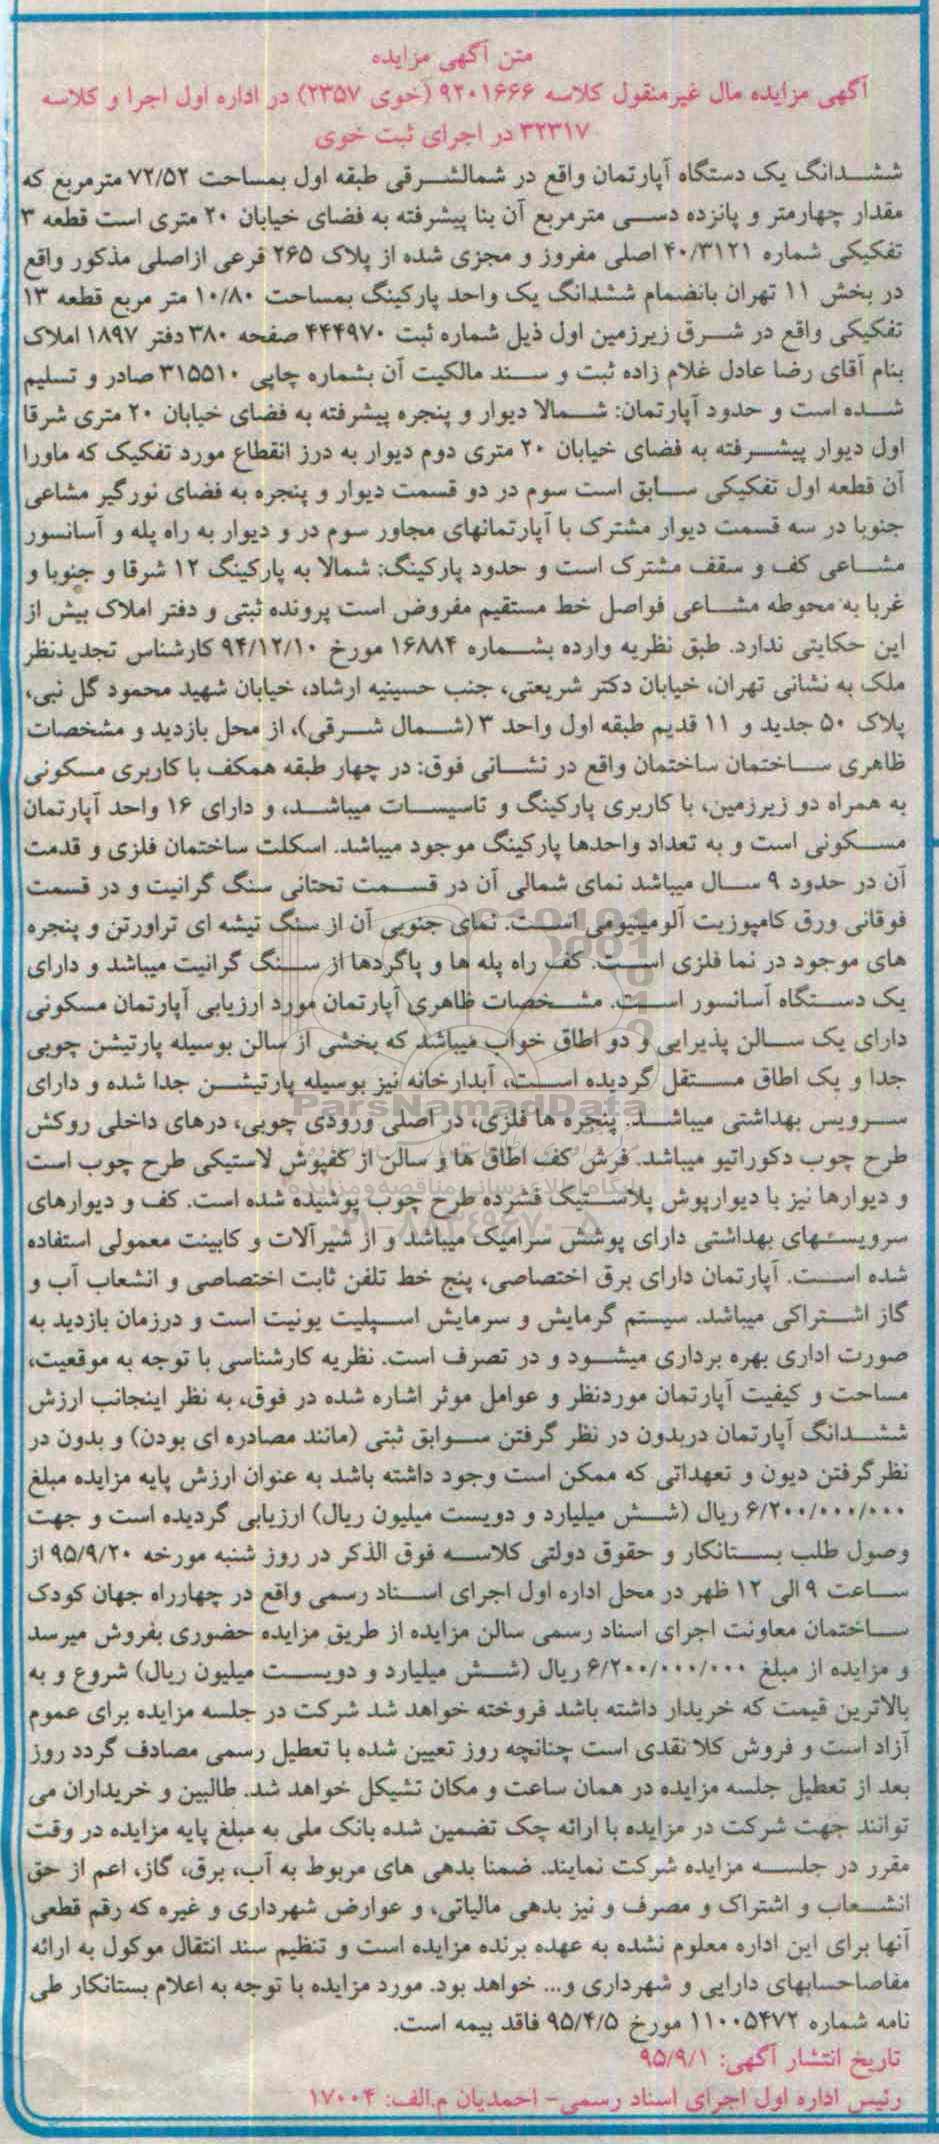 متن آگهی مزایده
آگهی مزایده مال غیرمنقول کلاسه ۹۲۰۱۶۶۶ (خوی ۲۳۵۷) در اداره اول اجرا و کلاسه
۳۲۳۱۷ در اجرای ثبت خوی
ششدانگ یک دستگاه آپارتمان واقع در شمالشرقی طبقه اول بمساحت ۷۲/۵۲ مترمربع که
مقدار چهارمتر و پانزده دسی مترمربع آن بنا پیشرفته به فضای خیابان ۲۰ متری است قطعه ۳
تفکیکی شماره ۴۰/۳۱۲۱ اصلی مفروز و مجزی شده از پلاک ۲۶۵ فرعی ازاصلی مذکور واقع
در بخش ۱۱ تهران بانضمام ششدانگ یک واحد پارکینگ بمساحت ۱۰/۸۰ متر مربع قطعه ۱۳
تفکیکی واقع در شرق زیرزمین اول ذیل شماره ثبت ۴۴۴۹۷۰ صفحه ۳۸۰ دفتر ۱۸۹۷ املاک
بنام آقای رضا عادل غلام زاده ثبت و سند مالکیت آن بشماره چاپی ۳۱۵۵۱۰ صادر و تسلیم
شده است و حدود آپارتمان: شمالا دیوار و پنجره پیشرفته به فضای خیابان ۲۰ متری شرقا
اول دیوار پیشرفته به فضای خیابان ۲۰ متری دوم دیوار به درز انقطاع مورد تفکیک که ماورا
آن قطعه اول تفکیکی سابق است سوم در دو قسمت دیوار و پنجره به فضای نورگیر مشاعی
جنوبا در سه قسمت دیوار مشترک با آپارتمانهای مجاور سوم در و دیوار به راه پله و آسانسور
مشاعی کف و سقف مشترک است و حدود پارکینگ: شمالا به پارکینگ ۱۲ شرقا و جنوبا و
غربا به محوطه مشاعی فواصل خط مستقیم مفروض است پرونده ثبتی و دفتر املاک بیش از
این حکایتی ندارد. طبق نظریه وارده بشماره ۱۶۸۸۴ مورخ ۹۴/۱۲/۱۰ کارشناس تجدیدنظر
ملک به نشانی تهران، خیابان دکتر شریعتی، جنب حسینیه ارشاد، خیابان شهید محمود گل نبی،
پلاک ۵۰ جدید و ۱۱ قدیم طبقه اول واحد ۳ (شمال شرقی)، از محل بازدید و مشخصات
ظاهری ساختمان ساختمان واقع در نشانی فوق: در چهار طبقه همکف با کاربری مسکونی
به همراه دو زیرزمین، با کاربری پارکینگ و تاسیسات میباشد، و دارای ۱۶ واحد آپارتمان
مسکونی است و به تعداد واحدها پارکینگ موجود میباشد. اسکلت ساختمان فلزی و قدمت
آن در حدود ۹ سال میباشد نمای شمالی آن در قسمت تحتانی سنگ گرانیت و در قسمت
فوقانی ورق کامپوزیت آلومینیومی است. نمای جنوبی آن از سنگ تیشه ای تراورتن و پنجره
های موجود در نما فلزی است. کف راه پله ها و پاگردها از سنگ گرانیت میباشد و دارای
یک دستگاه آسانسور است. مشخصات ظاهری آپارتمان مورد ارزیابی آپارتمان مسکونی
دارای یک سالن پذیرایی و دو اطاق خواب میباشد که بخشی از سالن بوسیله پارتیشن چوبی
جدا و یک اطاق مستقل گردیده است، آبدارخانه نیز بوسیله پارتیشن جدا شده و دارای
سرویس بهداشتی میباشد. پنجره ها فلزی، در اصلی ورودی چوبی، درهای داخلی روکش
طرح چوب دکوراتیو میباشد. فرش کف اطاق ها و سالن از کفپوش لاستیکی طرح چوب است
و دیوارها نیز با دیوارپوش پلاستیک فشرده طرح چوب پوشیده شده است. کف و دیوارهای
سرویسهای بهداشتی دارای پوشش سرامیک میباشد و از شیرآلات و کابینت معمولی استفاده
شده است. آپارتمان دارای برق اختصاصی، پنج خط تلفن ثابت اختصاصی و انشعاب آب و
گاز اشتراکی میباشد. سیستم گرمایش و سرمایش اسپلیت یونیت است و درزمان بازدید به
صورت اداری بهره برداری میشود و در تصرف است. نظریه کارشناسی با توجه به موقعیت،
مساحت و کیفیت آپارتمان موردنظر و عوامل موثر اشاره شده در فوق، به نظر اینجانب ارزش
ششدانگ آپارتمان دربدون در نظر گرفتن سوابق ثبتی (مانند مصادره ای بودن) و بدون در
نظرگرفتن دیون و تعهداتی که ممکن است وجود داشته باشد به عنوان ارزش پایه مزایده مبلغ
۶/۲۰۰/۰۰۰/۰۰۰ ریال (شش میلیارد و دویست میلیون ریال) ارزیابی گردیده است و جهت
وصول طلب بستانکار و حقوق دولتی کلاسه فوق الذکر در روز شنبه مورخه ۹۵/۹/۲۰ از
ساعت ۹ الی ۱۲ ظهر در محل اداره اول اجرای اسناد رسمی واقع در چهارراه جهان کودک
ساختمان معاونت اجرای اسناد رسمی سالن مزایده از طریق مزایده حضوری بفروش میرسد
و مزایده از مبلغ ۶/۲۰۰/۰۰۰/۰۰۰ ریال (شش میلیارد و دویست میلیون ریال) شروع و به
بالاترین قیمت که خریدار داشته باشد فروخته خواهد شد شرکت در جلسه مزایده برای عموم
آزاد است و فروش کلا نقدی است چنانچه روز تعیین شده با تعطیل رسمی مصادف گردد روز
بعد از تعطیل جلسه مزایده در همان ساعت و مکان تشیکل خواهد شد. طالبین و خریداران می
توانند جهت شرکت در مزایده با ارائه چک تضمین شده بانک ملی به مبلغ پایه مزایده در وقت
مقرر در جلسه مزایده شرکت نمایند. ضمنا بدهی های مربوط به آب، برق، گاز، اعم از حق
انشعاب و اشتراک و مصرف و نیز بدهی مالیاتی، و عوارض شهرداری و غیره که رقم قطعی
آنها برای این اداره معلوم نشده به عهده برنده مزایده است و تنظیم سند انتقال موکول به ارائه
مفاصاحسابهای دارایی و شهرداری و... خواهد بود. مورد مزایده با توجه به اعلام بستانکار طی
نامه شماره ۱۱۰۰۵۴۷۲ مورخ ۹۵/۴/۵ فاقد بیمه است.
تاریخ انتشار آگهی: ۹۵/۹/۱
رئیس اداره اول اجرای اسناد رسمی- احمدیان م.الف: ۱۷۰۰۴
ParsNamadData
پایگاه اطلاع رسانی مناقصه و مزایده
۰۲۱-۸۸۳۴۹۶۷۰-۵